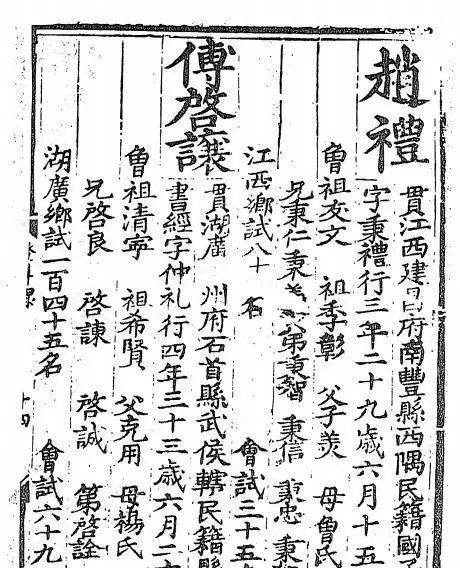 趙禮
貫江西建昌府南豐縣西隅民籍國子
字秉禮行三年二十九歲六月十五
曾祖友文 祖季彰 父子羙 母曾氏
兄秉仁 秉 弟秉智 秉信 秉忠 秉
江西鄉試八十 名 會試三十五
傅啓讓
貫湖廣 州府石首縣武侯轄民籍縣
書經字仲礼行四年三十三歲六月二
曾祖清寧 祖希賢 父克用 母楊氏
兄啓良 啓諫 啓誠 第啓詮
湖廣鄉試一百四十五名 會試六十九
十四